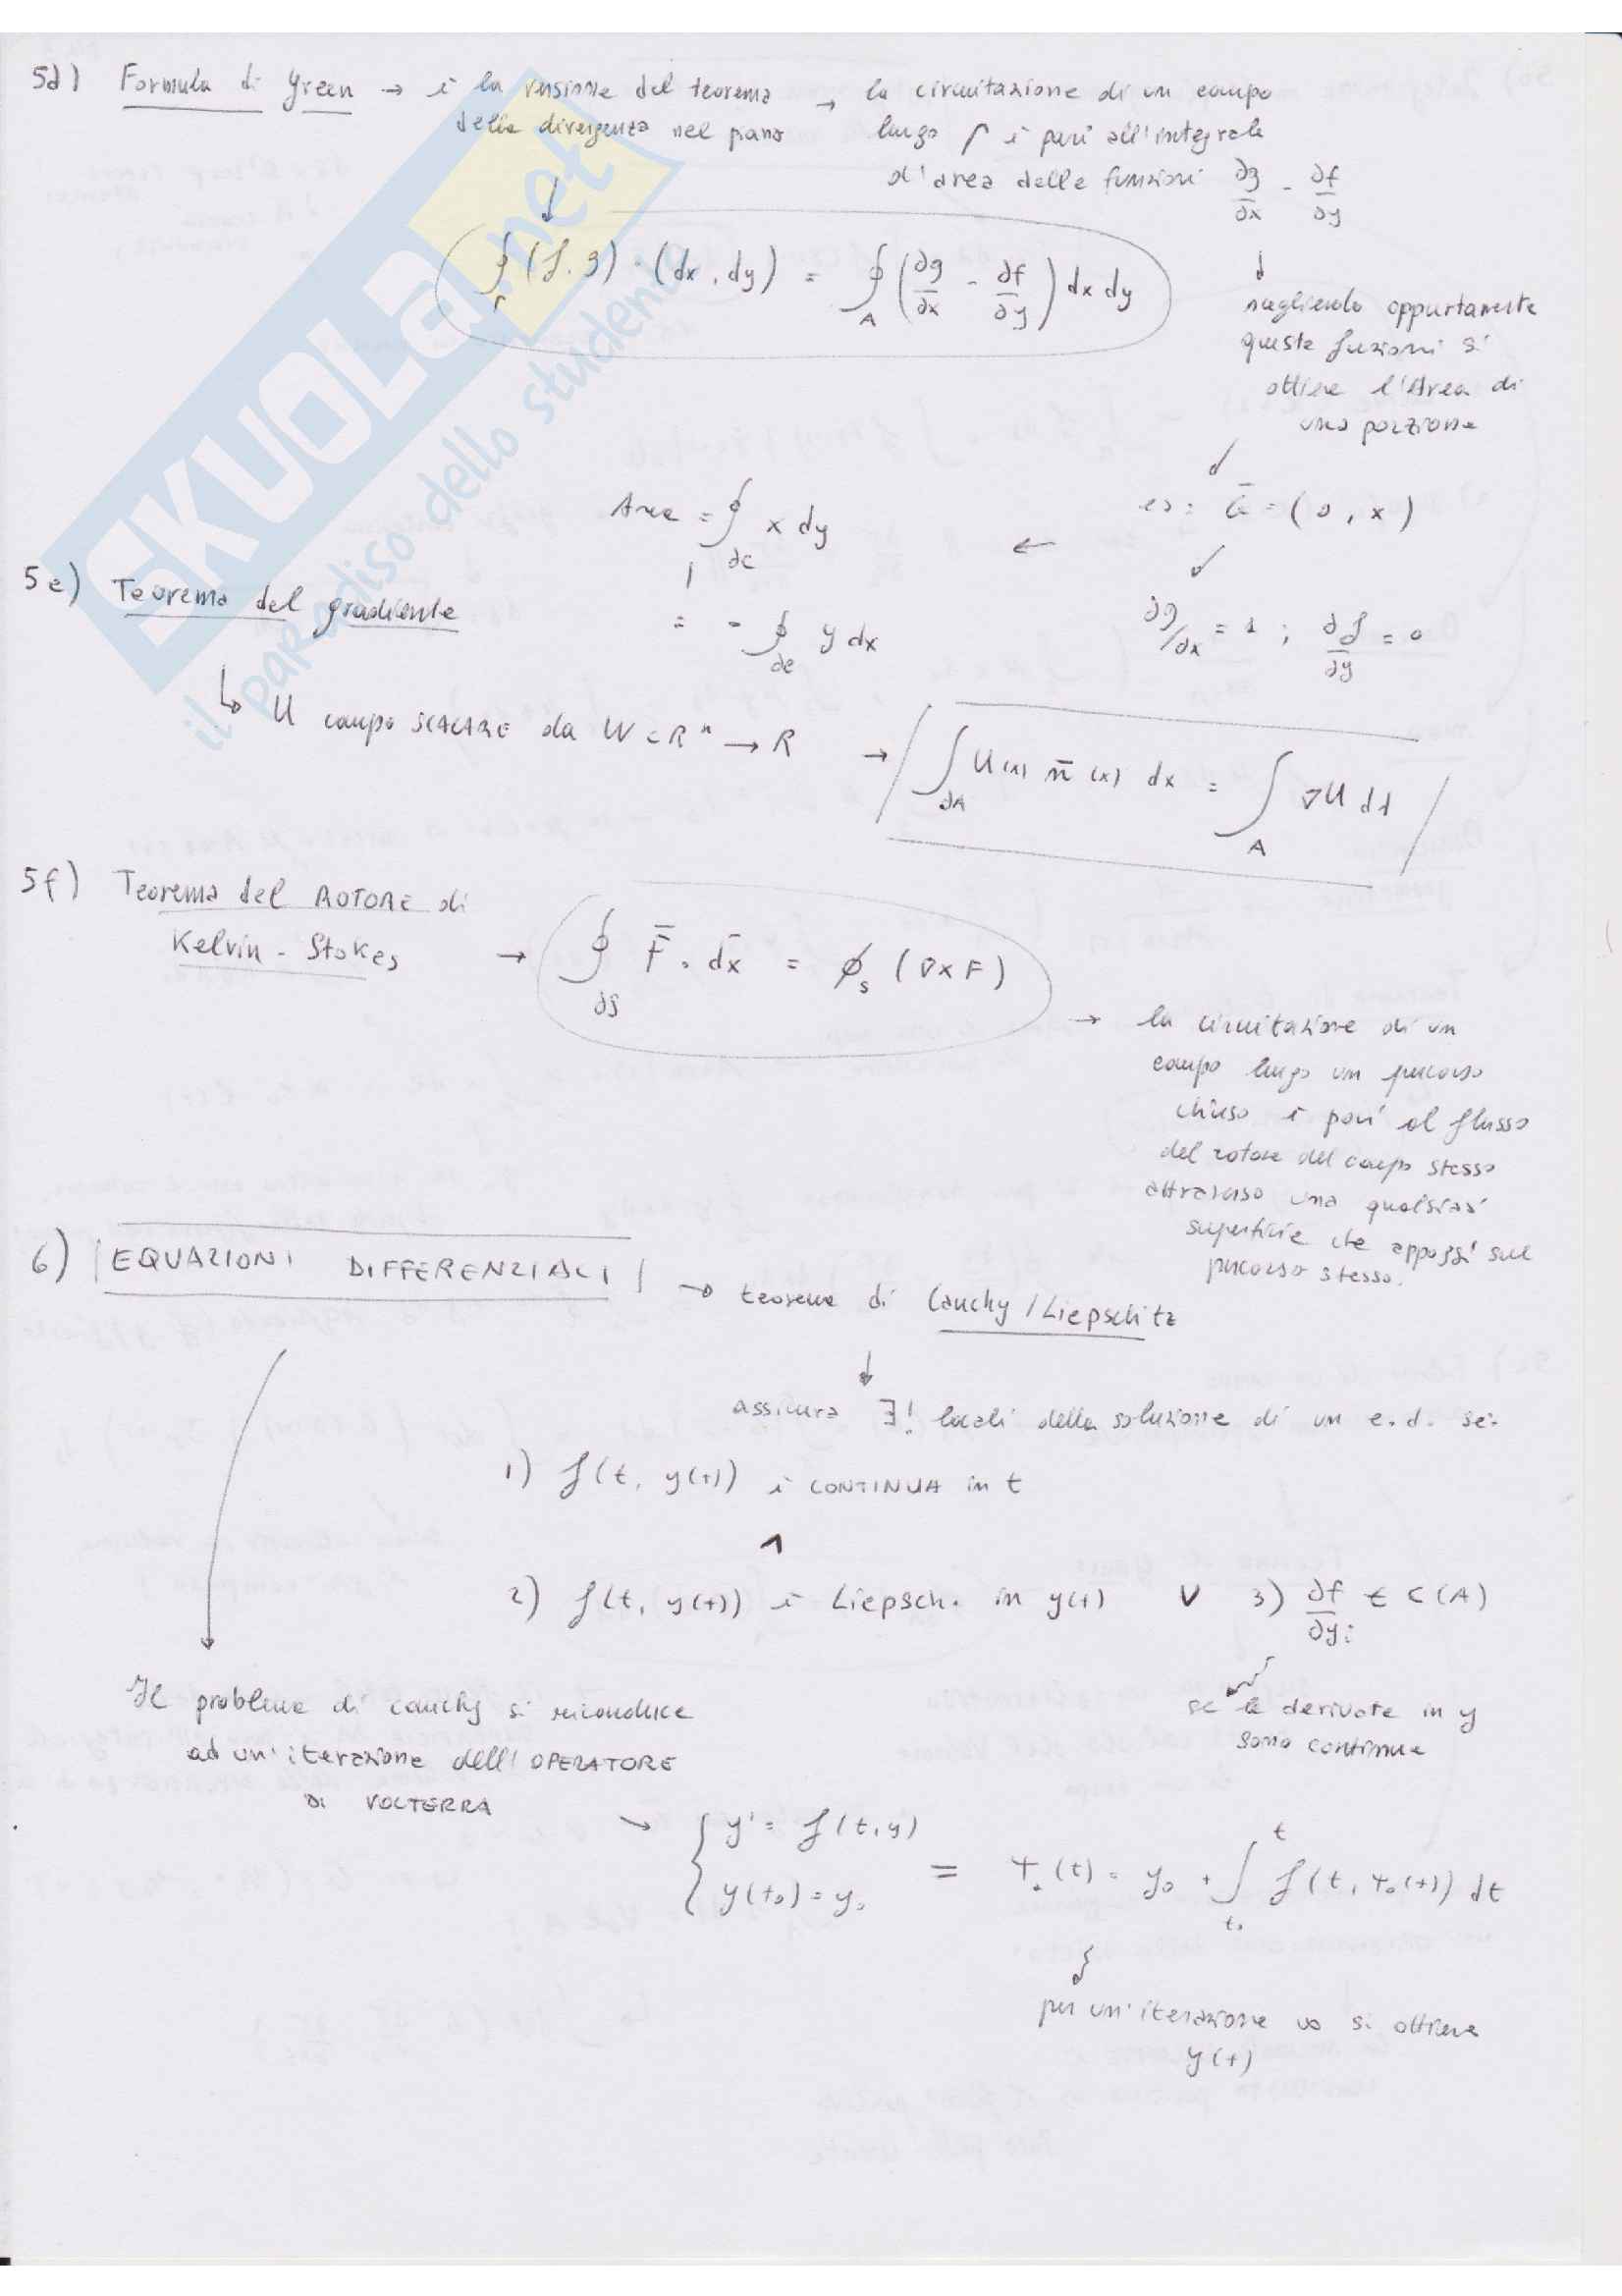 5d) Formula di Green → è la versione del teorema della divergenza nel piano → la circuitazione di un campo
lungo Γ è pari all'integrale
d'area delle funzioni ∂g/∂x - ∂f/∂y
↓
∮Γ (f, g) · (dx, dy) = ∮A (∂g/∂x - ∂f/∂y) dx dy
↓
scegliendo opportunamente
queste funzioni si
ottiene l'Area di
una porzione
es: G̅ = (0, x)
∂g/∂x = 1 ; ∂f/∂y = 0
←
Area = ∮∂C x dy
= - ∮∂C y dx
5e) Teorema del gradiente
↳ U campo SCALARE da W ⊂ R^n → R → ∫∂A U(x) n̅(x) dx = ∫A ∇U dA
5f) Teorema del ROTORE di
Kelvin - Stokes → ∮∂S F̅ · dx̅ = ϕs (∇×F)
→ la circuitazione di un
campo lungo un percorso
chiuso è pari al flusso
del rotore del campo stesso
attraverso una qualsiasi
superficie che appoggi sul
percorso stesso.
6) EQUAZIONI DIFFERENZIALI → teorema di Cauchy / Liepschitz
↓
assicura ∃! locali della soluzione di un e.d. se:
1) f(t, y(t)) è CONTINUA in t
∧
2) f(t, y(t)) è Liepsch. in y(t) ∨ 3) ∂f/∂yi ∈ C(A)
se le derivate in y
sono continue
Il problema di Cauchy si riconduce
ad un'iterazione dell'OPERATORE
DI VOLTERRA
→ { y' = f(t,y)
y(t0) = y0 = Ψ0(t) = y0 + ∫t0^t f(t, Ψ0(t)) dt
per un'iterazione ∞ si ottiene
y(t)
SKUOLA.net
il paradiso dello studente